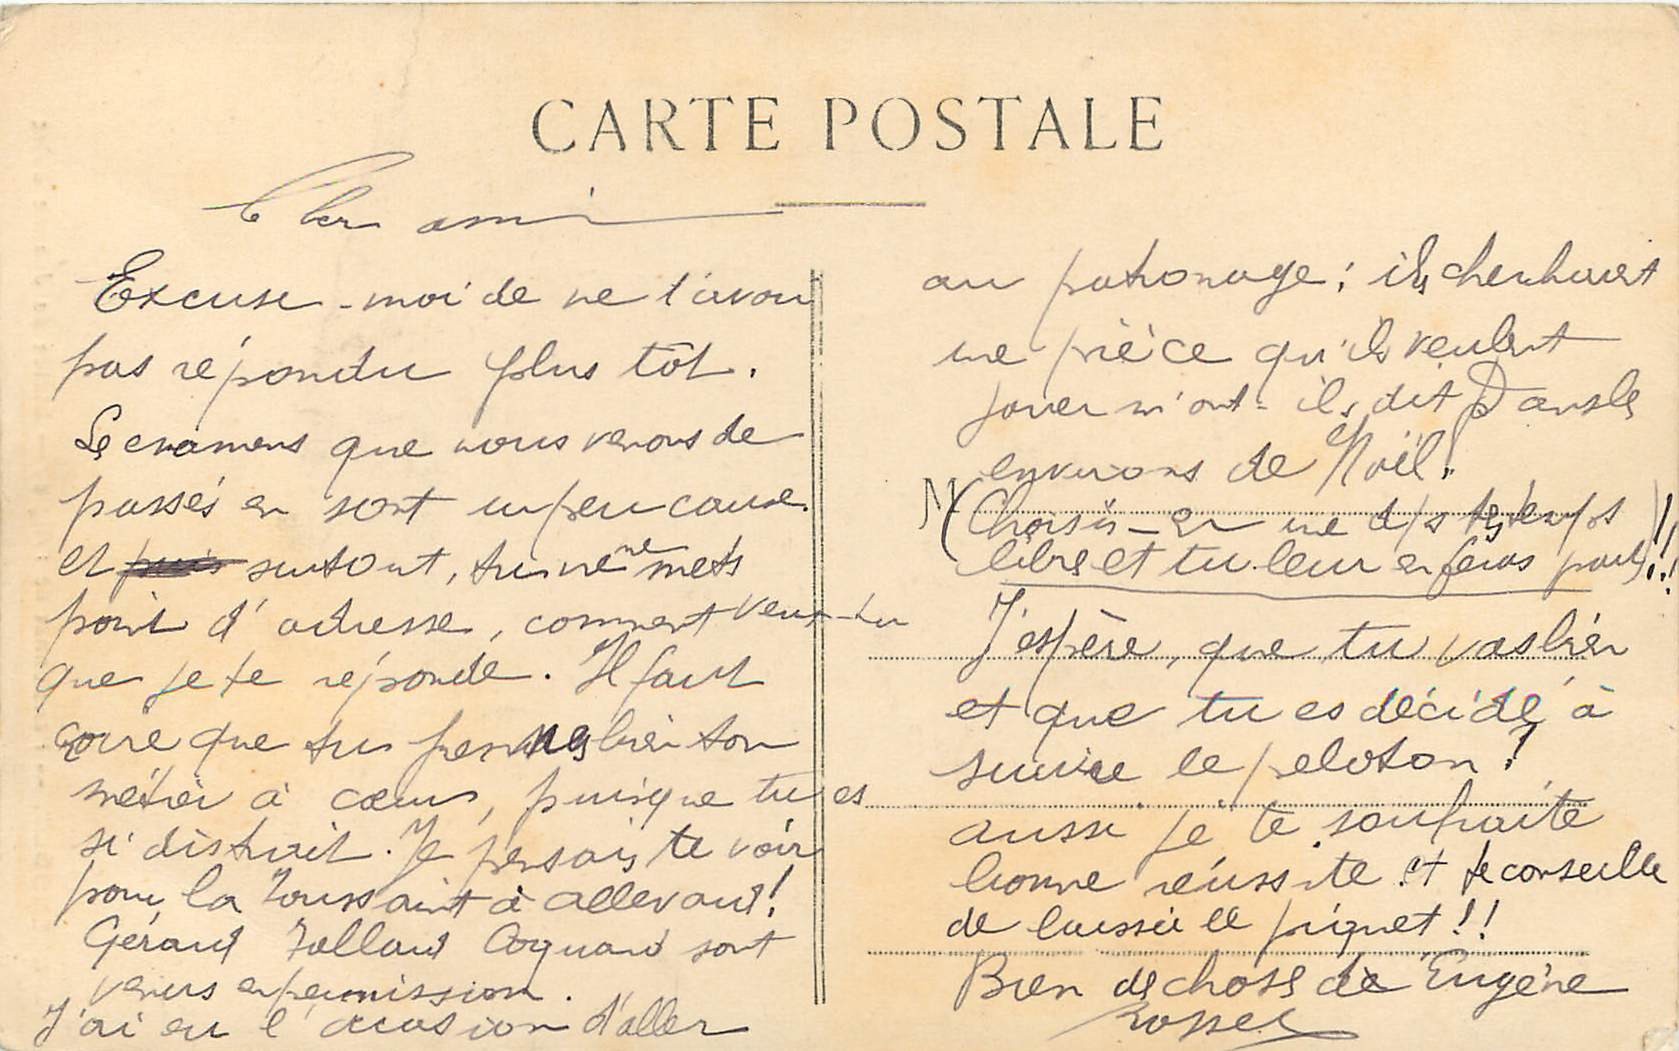 CARTE POSTALE
Cher ami
Excuse-moi de ne t'avoir
pas répondu plus tôt.
Les examens que nous venons de
passés en sont un peu cause.
et puis surtout, tu ne me mets
point d'adresse, comment veux-tu
que je te réponde. Il faut
croire que tu penses bien ton
métier à cœur, puisque tu es
si distrait. Je pensais te voir
pour la Toussaint à Allevard!
Gérard Coquand sont
venus en permission.
J'ai eu l'occasion d'aller
au patronage; ils cherchaient
une pièce qu'ils veulent
jouer m'ont-ils dit Dans les
environs de Noël.
(Choisis-en une dps tes temps
libre et tu leur en feras part)!!
J'espère, que tu vas bien
et que tu es décidé à
suivre le peloton!
aussi je te souhaite
bonne réussite et te conseille
de laisser le piquet!!
Bien de chose de Eugène
Rosset